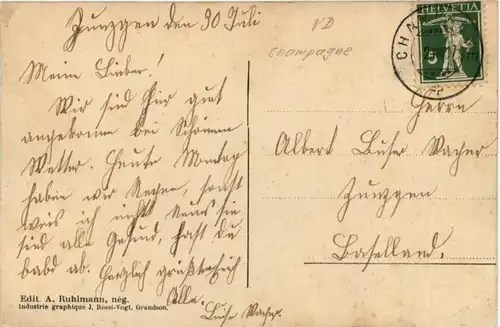 Zunzgen den 30 Juli
Meine Lieben!
Wir sind hier gut
angekomme bei Schönem
Wetter. Heute Montag
haben wir Regen, sonst
weis ich nicht Neues sie
sind alle Gesund, hast du
bald ab. Herzlich grüßt euch
Alle.
Buser Wacher.
Edit. A. Ruhlmann, nég.
Industrie graphique J. Rossi-Vogt, Grandson.
VD
Champagne
HELVETIA
5
CHA
Herrn
Albert Buser Wacher
Zunzgen
Baselland.